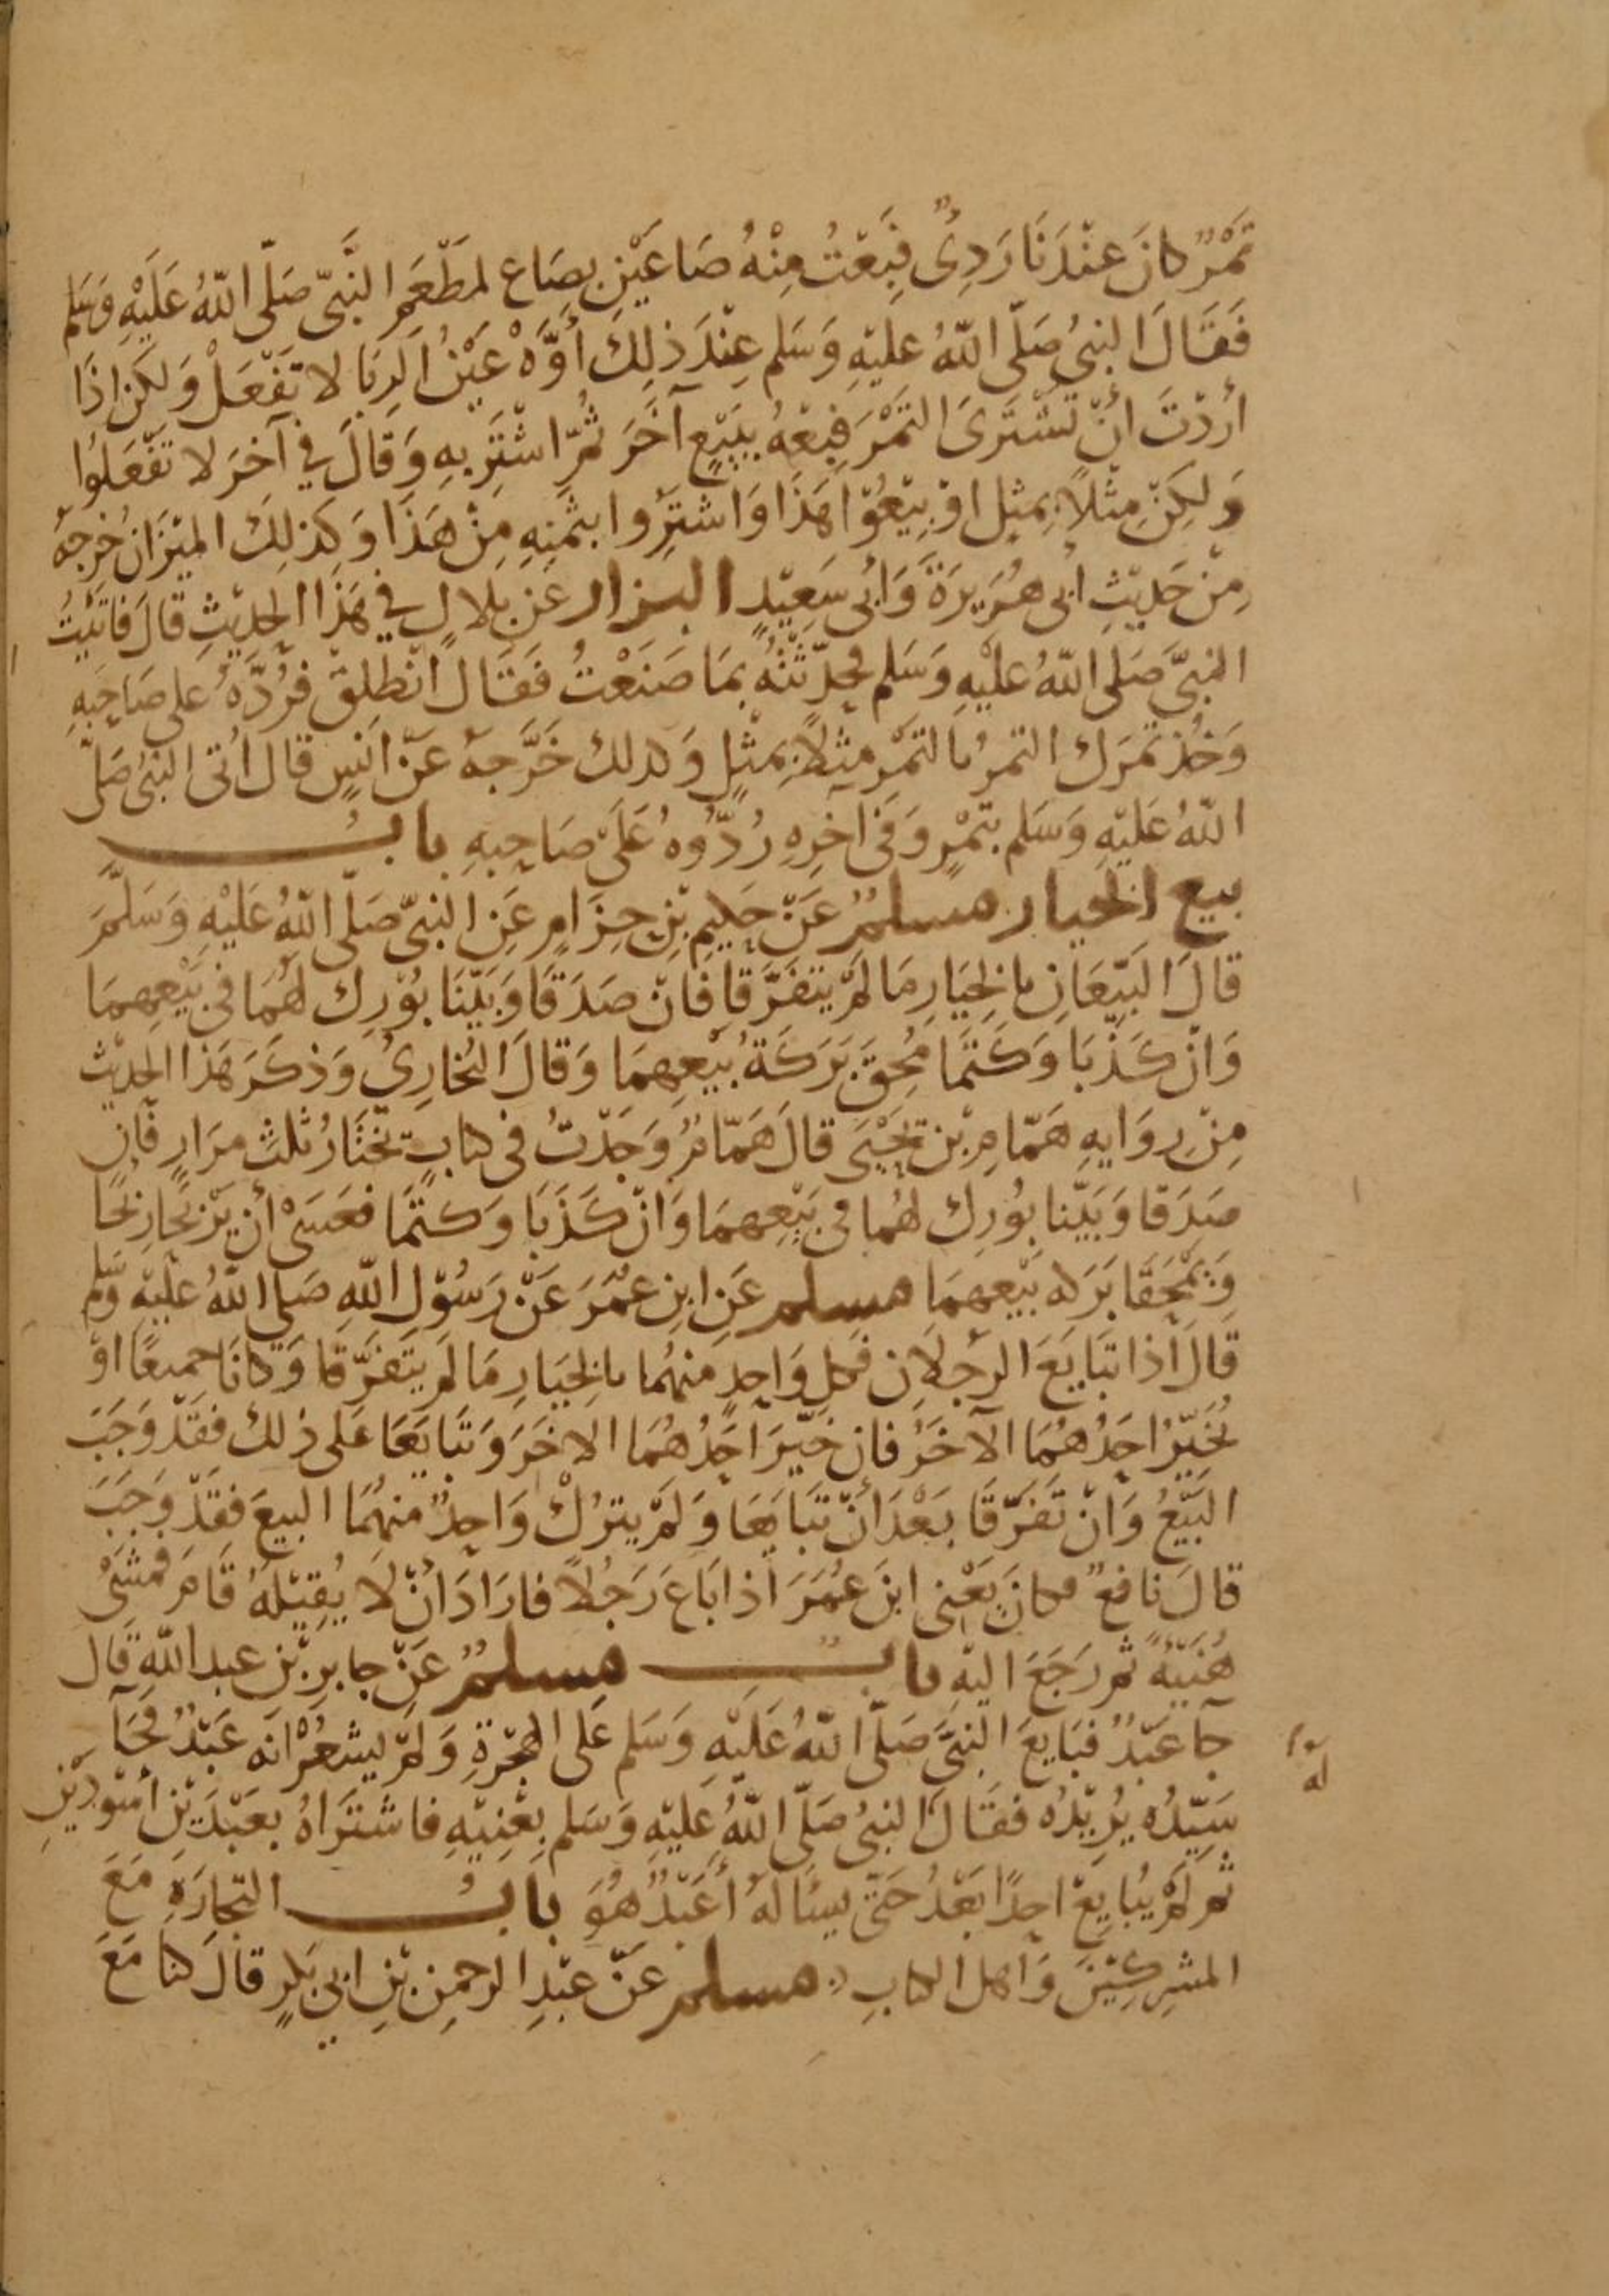 تَمْرٌ كانَ عنْدَنَا رَدِئٌ فَبِعْتُ مِنْهُ صَاعَيْنِ بِصَاع لمَطْعَمِ النَّبيّ صَلّى اللّهُ عَلَيْهِ وَسَلم
فَقَالَ النبيُ صَلّى اللّهُ عليْهِ وَسَلم عِنْدَ ذلِكَ أَوَّهْ عَيْنُ الرِبَا لا تَفْعَلْ وَلكن اذَا
أردْتَ أنْ تَشْتَرىَ التَمْرَ فَبِعْهُ بِبَيْعٍ آخَرَ ثُمّ اشْتَرِ بِهِ وَقالَ في آخرَ لا تَفْعَلُوا
وَلكِنْ مِثْلاً بمثِلٍ اوْ بِيْعُوْا هَذَا وَاشْتَرُوا بثَمنِهِ مِنْ هَذَا وَكَذلِكَ الميْزَانُ خرجهُ
مِنْ حَديْثِ ابى هُرَيرَةَ وَابى سَعِيْدٍ البزار عَن بِلالٍ في هَذَا الحديْثِ قالَ فاتَيْتُ
النبيَّ صَلى اللّهُ عليْهِ وَسَلم فحدّثتُهُ بمَا صَنَعْتُ فَقَالَ انْطلقْ فرُدَّهُ على صَاحِبهِ
وَخُذ تَمَرَك التمرُ بالتمْرِ مِثلاً بمثْلٍ وَكذلك خَرَّجهُ عَنْ انَسٍ قالَ اُتى النبىُ صَلّى
اللّهُ عَليْهِ وَسَلم بتَمْرٍ وَفى آخرِهِ رُدُّوهُ عَلَى صَاحِبهِ بابُ
بيع الخيار مسلمٌ عَنْ حَكيمِ بْنِ حِزَامٍ عَنِ النبىّ صَلّى اللّهُ عَلَيْهِ وَسَلَّمَ
قالَ البَيِّعَانِ بالخِيَارِ مَا لَمْ يتَفرَّقا فانْ صَدَقَا وَبَيّنَا بُوْرِكَ لهُمَا فى بَيْعِهمَا
وَانْ كَذَبَا وَكَتَمَا مُحِقَ بَرَكَةُ بَيْعِهمَا وَقالَ البُخارِىُ وَذكَرَ هَذا الحدِيْث
مِنْ رِوَايهِ هَمّامِ بْن يَحْيَى قالَ هَمّامٌ وَجَدْتُ فى كتابٍ يخْتَارُ ثلثَ مرَارٍ فَان
صَدَقا وَبَيّنا بُورِك لهُما فى بَيْعِهمَا وَانْ كَذَبَا وَكتَمَا فعَسَىْ أن يَرْبحَا رِبْحًا
وَيُمْحَقَا بَرَكه بَيْعهمَا مسلم عَنِ ابنِ عُمَرَ عَنْ رَسُوْلِ اللّهِ صَلى اللّهُ عليْهِ وسَلم
قالَ اذا تبَايَعَ الرَجلانِ فكل وَاحدٍ منهُما بالخِيَارِ مَا لَم يَتَفَرَّقا وَكَانَا جميعًا اوْ
يُخَيّرُ احَدُهُمَا الآخَرُ فان خيّرَ احَدُهُمَا الاخَرَ وَتبَايَعَا عَلى ذلك فقَدْ وَجَبَ
البَيْعُ وَانْ تَفرّقَا بَعْدَ أنْ تبَايَعَا وَلَمْ يترُكْ وَاحِدٌ منهُمَا البيعَ فقَدْ وَجَبَ
قالَ نافعٌ فكانَ يَعْنى ابنَ عُمَرَ اذا بَاعَ رَجُلاً فارَادَ انْ لَا يُقِيْلهُ قَامَ فمشَىْ
هُنَيّةً ثم رَجَعَ اليْهِ بابٌ مسلمٌ عَنْ جابرِ بْن عبد اللّهِ قَال
جآ عَبْدٌ فبَايعَ النبىَّ صَلّى اللّهُ عَلَيْهِ وَسَلم عَلى الهِجْرَةِ وَلَمْ يشعُرْ انَه عَبْدٌ فجَآ
سَيّدُه يُرِيْدُه فقَالَ لَهُ النبىُ صَلّى اللّهُ عليْهِ وَسَلم بِعْنِيْهِ فاشْتَرَاهُ بعَبْدَيْنِ اَسْوَدَيْنِ
ثم لَمْ يُبَايِعْ احدًا بَعْدُ حَتّى يسئَالَهُ أَعَبْدٌ هُوَ بابُ التِجارَةِ مَعَ
المشرِكِيْنَ وَاهل الكتابِ مسلم عَنْ عبْدِ الرحمنِ بْنِ ابي بَكرٍ قالَ كنا مَعَ